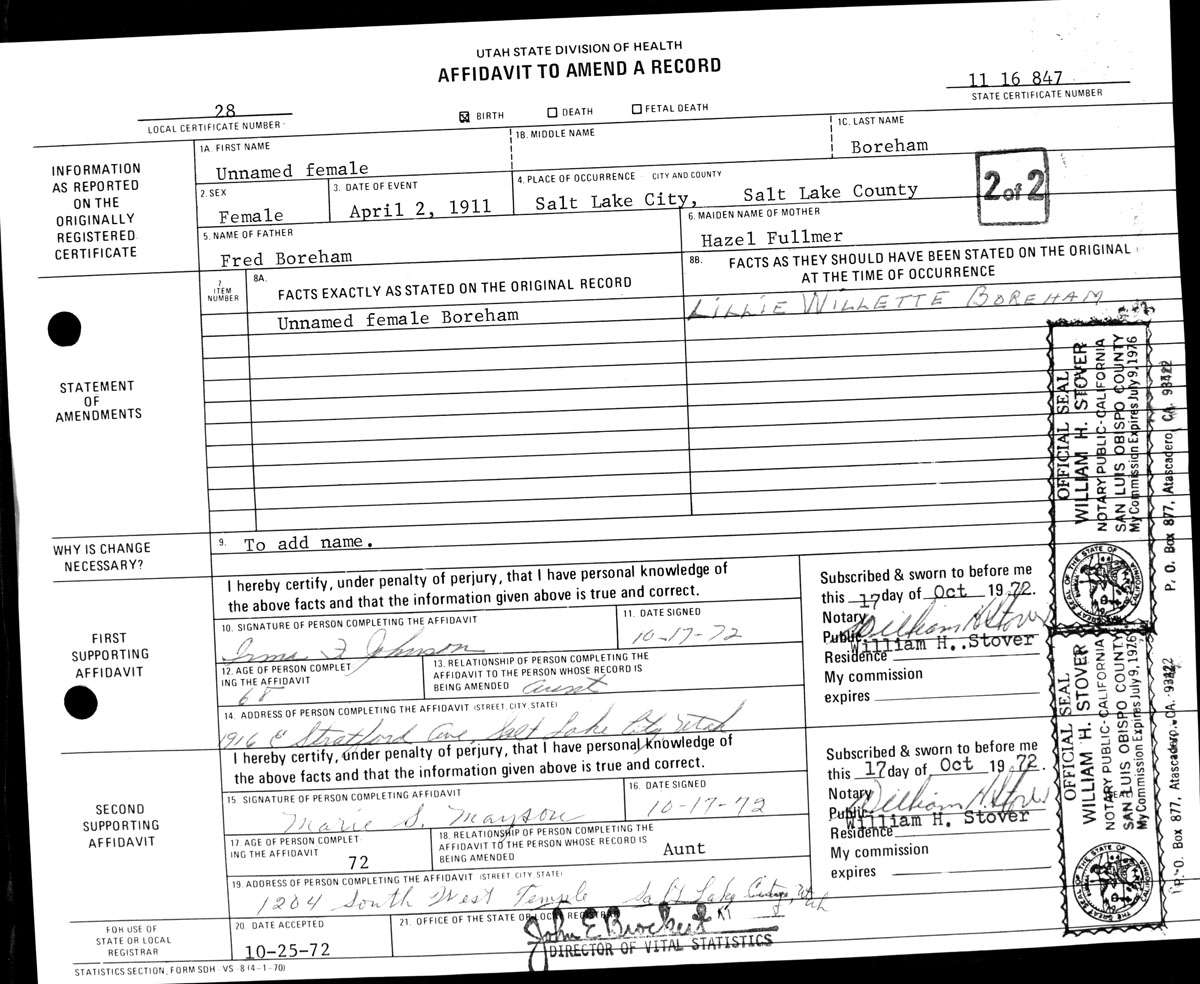 UTAH STATE DIVISION OF HEALTH
AFFIDAVIT TO AMEND A RECORD
28
LOCAL CERTIFICATE NUMBER
☒ BIRTH ☐ DEATH ☐ FETAL DEATH
11 16 847
STATE CERTIFICATE NUMBER
INFORMATION
AS REPORTED
ON THE
ORIGINALLY
REGISTERED
CERTIFICATE
1A. FIRST NAME
Unnamed female
1B. MIDDLE NAME
1C. LAST NAME
Boreham
2. SEX
Female
3. DATE OF EVENT
April 2, 1911
4. PLACE OF OCCURRENCE - CITY AND COUNTY
Salt Lake City, Salt Lake County
2 of 2
5. NAME OF FATHER
Fred Boreham
6. MAIDEN NAME OF MOTHER
Hazel Fullmer
STATEMENT
OF
AMENDMENTS
7
ITEM
NUMBER
8A.
FACTS EXACTLY AS STATED ON THE ORIGINAL RECORD
Unnamed female Boreham
8B. FACTS AS THEY SHOULD HAVE BEEN STATED ON THE ORIGINAL
AT THE TIME OF OCCURRENCE
LILLIE WILLETTE BOREHAM
WHY IS CHANGE
NECESSARY?
9. To add name.
FIRST
SUPPORTING
AFFIDAVIT
I hereby certify, under penalty of perjury, that I have personal knowledge of
the above facts and that the information given above is true and correct.
10. SIGNATURE OF PERSON COMPLETING THE AFFIDAVIT
Irma F Johnson
11. DATE SIGNED
10-17-72
12. AGE OF PERSON COMPLET
ING THE AFFIDAVIT
68
13. RELATIONSHIP OF PERSON COMPLETING THE
AFFIDAVIT TO THE PERSON WHOSE RECORD IS
BEING AMENDED aunt
14. ADDRESS OF PERSON COMPLETING THE AFFIDAVIT (STREET, CITY, STATE)
1916 E Stratford Ave, Salt Lake City Utah
Subscribed & sworn to before me
this 17 day of Oct 19 72.
Notary William H. Stover
Public William H. Stover
Residence
My commission
expires
SECOND
SUPPORTING
AFFIDAVIT
I hereby certify, under penalty of perjury, that I have personal knowledge of
the above facts and that the information given above is true and correct.
15. SIGNATURE OF PERSON COMPLETING AFFIDAVIT
Marie S. Mayson
16. DATE SIGNED
10-17-72
17. AGE OF PERSON COMPLET
ING THE AFFIDAVIT
72
18. RELATIONSHIP OF PERSON COMPLETING THE
AFFIDAVIT TO THE PERSON WHOSE RECORD IS
BEING AMENDED Aunt
19. ADDRESS OF PERSON COMPLETING THE AFFIDAVIT (STREET, CITY, STATE)
1204 South West Temple Salt Lake City, Utah
Subscribed & sworn to before me
this 17 day of Oct 19 72.
Notary William H. Stover
Public William H. Stover
Residence
My commission
expires
FOR USE OF
STATE OR LOCAL
REGISTRAR
20 DATE ACCEPTED
10-25-72
21. OFFICE OF THE STATE OR LOCAL REGISTRAR
John E Brockert
DIRECTOR OF VITAL STATISTICS
STATISTICS SECTION, FORM SDH - VS - 8 (4-1-70)
OFFICIAL SEAL
WILLIAM H. STOVER
NOTARY PUBLIC-CALIFORNIA
SAN LUIS OBISPO COUNTY
My Commission Expires July 9, 1976
P. O. Box 877, Atascadero, CA. 93422
OFFICIAL SEAL
WILLIAM H. STOVER
NOTARY PUBLIC-CALIFORNIA
SAN LUIS OBISPO COUNTY
My Commission Expires July 9, 1976
P. O. Box 877, Atascadero, CA. 93422